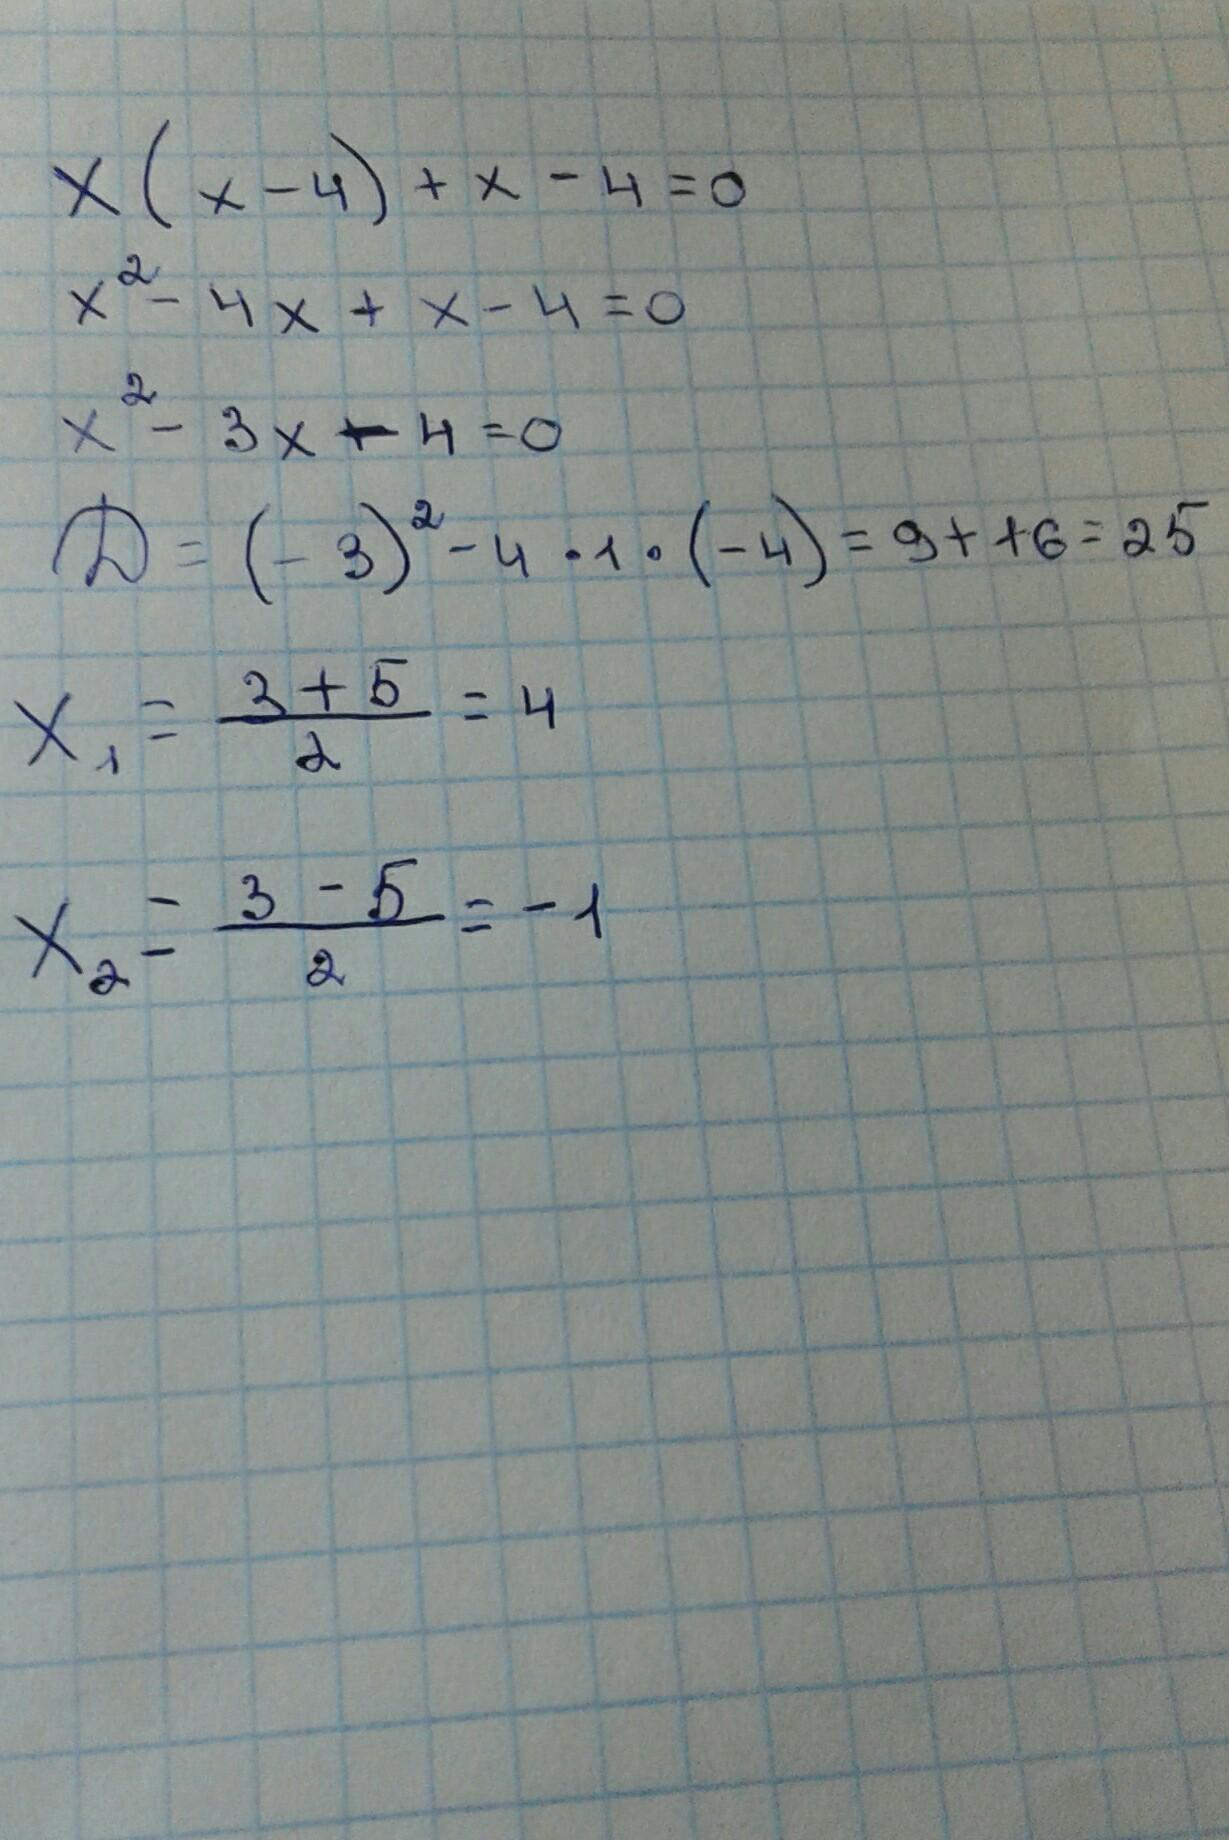 x(x-4)+x-4=0
x²-4x+x-4=0
x²-3x-4=0
D=(-3)²-4·1·(-4)=9+16=25
x₁=(3+5)/2=4
x₂=(3-5)/2=-1